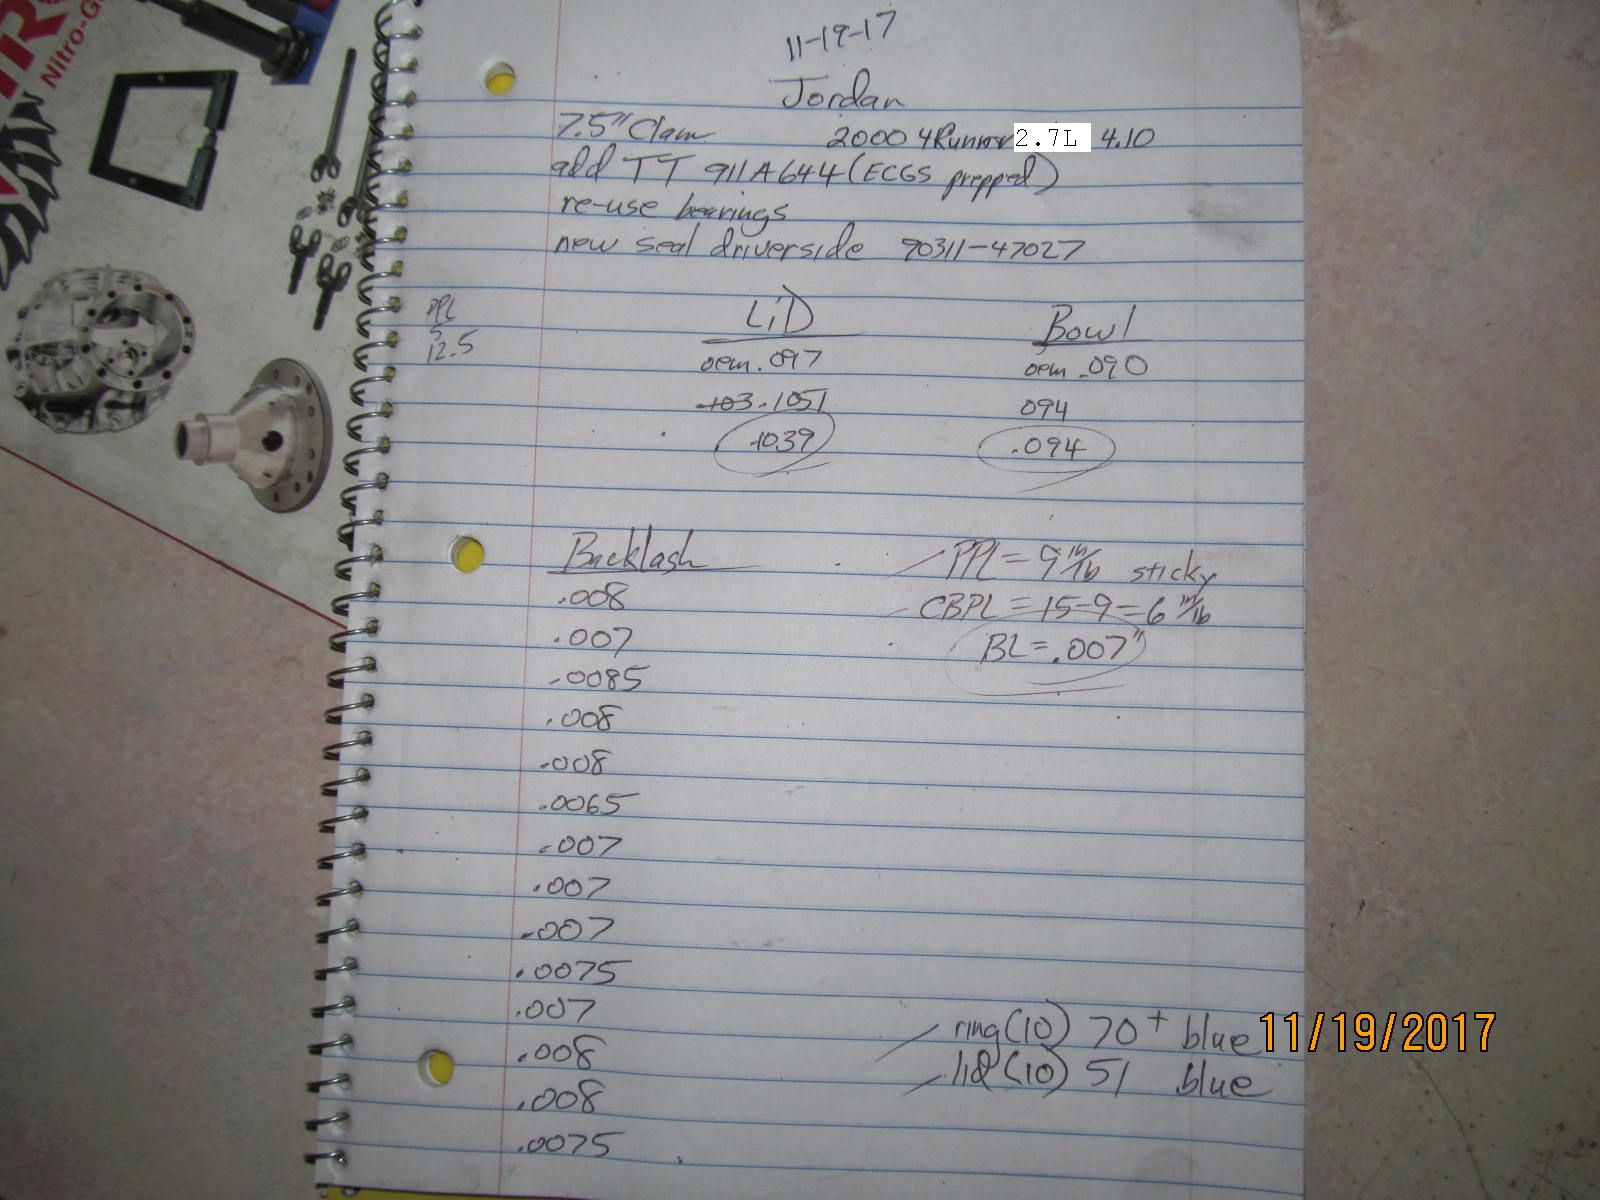 Nitro-G
11-19-17
Jordan
7.5" Clam 2000 4Runner 2.7L 4.10
add TT 911A644 (ECGS prepped)
re-use bearings
new seal driverside 90311-47027
PPL
5
12.5
LiD
oem .097
103 .1051
.1039
Bowl
oem .090
094
.094
Backlash
.008
.007
.0085
.008
.008
.0065
.007
.007
.007
.0075
.007
.008
.008
.0075
PPL = 9 in/lb sticky
CBPL = 15-9 = 6 in/lb
BL = .007"
ring (10) 70+ blue
lid (10) 51 blue
11/19/2017